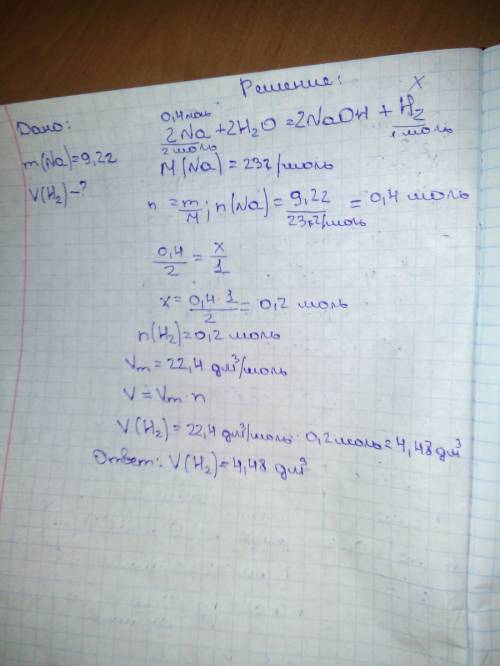 Решение:
Дано:
m(Na)=9,2г
V(H₂)-?
0,4 моль x
2Na+2H₂O=2NaOH + H₂
2 моль 1 моль
M(Na) = 23г/моль
n = m/M; n(Na) = 9,2г/23г/моль = 0,4 моль
0,4/2 = x/1
x = 0,4·1/2 = 0,2 моль
n(H₂)=0,2 моль
Vm = 22,4 дм³/моль
V = Vm·n
V(H₂)=22,4 дм³/моль·0,2моль=4,48 дм³
Ответ: V(H₂)=4,48 дм³